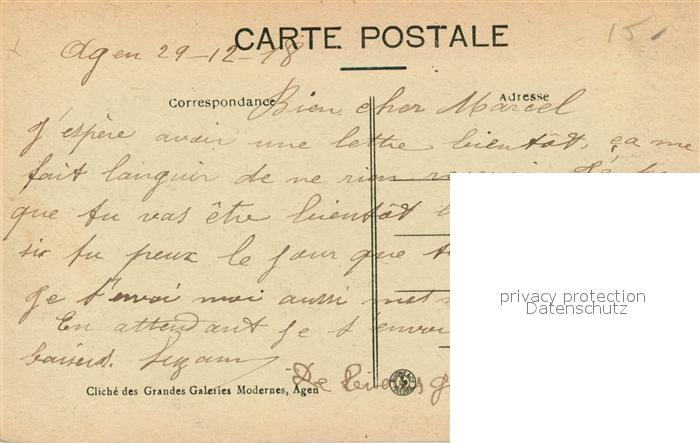 CARTE POSTALE
15
Agen 29-12-18
Correspondance
Adresse
Bien cher Marcel
J'espère avoir une lettre bientôt, ça me
fait languir de ne rien
que tu vas être bientôt
si tu peux le jour que
Je t'envoi moi aussi
En attendant je t'envoi
baisers. Suzanne
De
Cliché des Grandes Galeries Modernes, Agen
privacy protection
Datenschutz